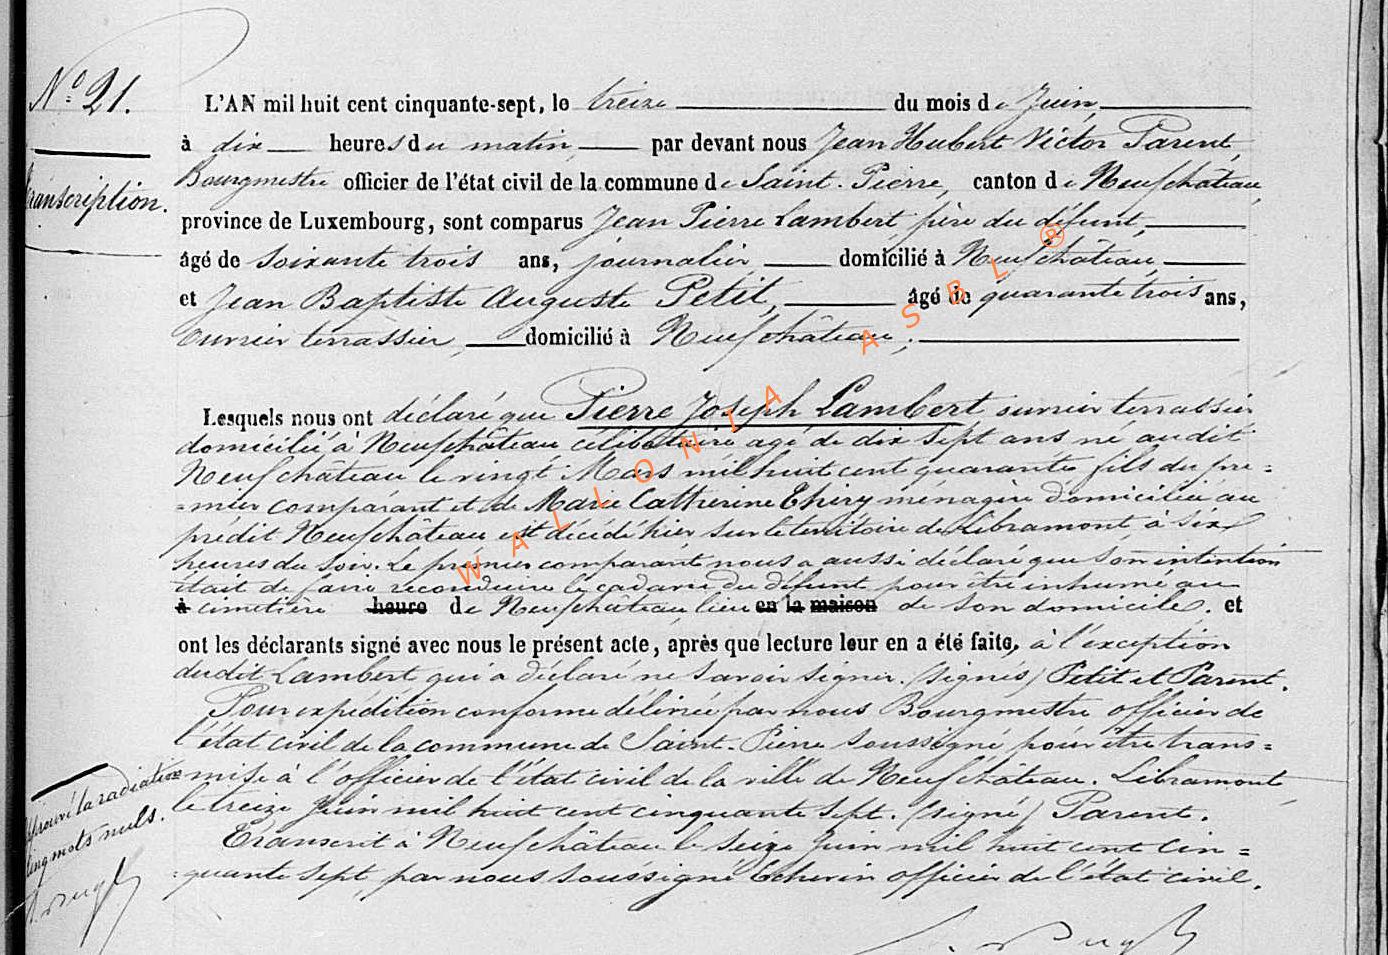 N.º 21.
Transcription.
L'AN mil huit cent cinquante-sept, le treize du mois de Juin,
à dix heures du matin, par devant nous Jean Hubert Victor Parent,
Bourgmestre officier de l'état civil de la commune de Saint-Pierre, canton de Neufchâteau,
province de Luxembourg, sont comparus Jean Pierre Lambert père du défunt,
âgé de soixante trois ans, journalier domicilié à Neufchâteau,
et Jean Baptiste Auguste Petit, âgé de quarante trois ans,
ouvrier terrassier, domicilié à Neufchâteau;
Lesquels nous ont déclaré que Pierre Joseph Lambert ouvrier terrassier
domicilié à Neufchâteau célibataire agé de dix sept ans né audit
Neufchâteau le vingt Mars mil huit cent quarante fils du pre=
=mier comparant et de Marie Catherine Thiry ménagère domiciliée au
prédit Neufchâteau est décédé hier sur le territoire de Libramont à six
heures du soir. Le premier comparant nous a aussi déclaré que son intention
était de faire reconduire le cadavre du défunt pour être inhumé au
à cimetière heure de Neufchâteau lieu en la maison de son domicile. et
ont les déclarants signé avec nous le présent acte, après que lecture leur en a été faite, à l'exception
dudit Lambert qui a déclaré ne savoir signer. (signés) Petit et Parent.
Pour expédition conforme délivrée par nous Bourgmestre officier de
l'état civil de la commune de Saint-Pierre soussigné pour être trans=
mise à l'officier de l'état civil de la ville de Neufchâteau. Libramont,
le treize Juin mil huit cent cinquante sept. (signé) Parent.
Transcrit à Neufchâteau le seize Juin mil huit cent cin=
=quante sept, par nous soussigné Echevin officier de l'état civil.
Approuvé la radiation
cinq mots nuls.
WALLONIA ASBL ®